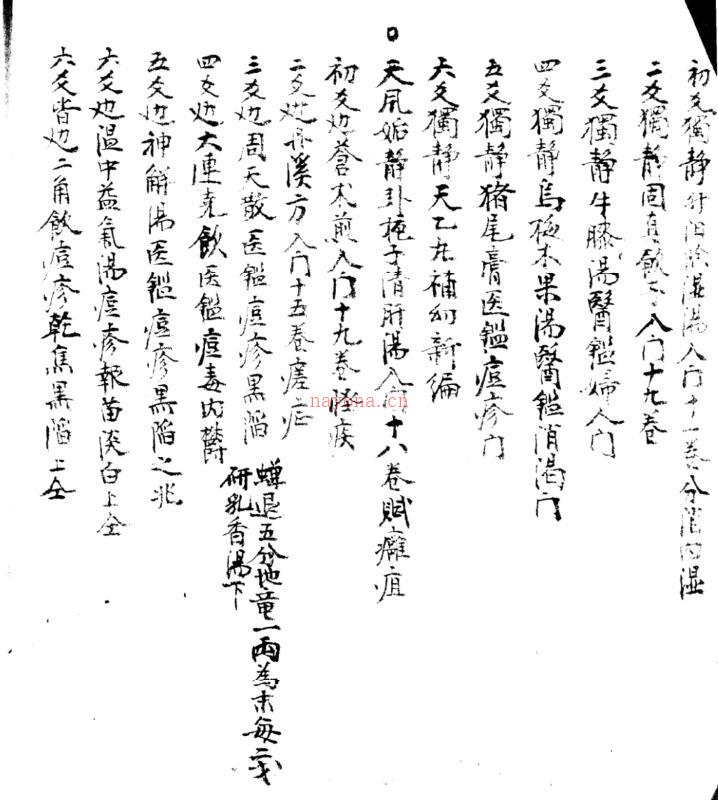 初爻獨靜升阳除湿湯入门十一卷分消內湿
二爻獨靜固真飲子入门十九卷
三爻獨靜牛膝湯醫鑑婦人门
四爻獨靜烏梅木果湯醫鑑消渴门
五爻獨靜猪尾膏医鑑痘疹门
六爻獨靜天乙丸補幼新編
天風姤靜卦梔子清肝湯入门十八卷賦癰疽
初爻边蒼术煎入门十九卷怪疾
二爻边丹溪方入门十五卷瘧症
三爻边周天散医鑑痘疹黑陷
蟬退五分地竜一兩為末每二戈
研乳香湯下
四爻边大連尭飲医鑑痘毒内欝
五爻边神解湯医鑑痘疹黑陷之兆
六爻边温中益氣湯痘疹報苗淡白上仝
六爻皆边二角飲痘疹乾焦黑陷上仝
nayona.cn